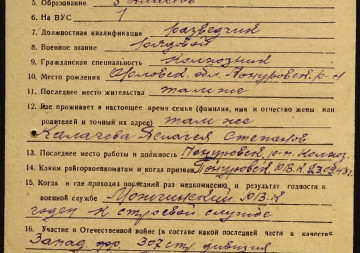 5. Образование 3 класса
6. На ВУС 1
7. Должностная квалификация разведчик
8. Военное звание рядовой
9. Гражданская специальность колхозник
10. Место рождения Орловск. обл. Понуровск. р-н
11. Последнее место жительства там же
12. Где проживает в настоящее время семья (фамилия, имя и отчество жены или
родителей и точный их адрес) там же
Калачева Пелагея Степанов
13. Последнее место работы и должность Понуровск. р-н. колхоз.
14. Каким райгорвоенкоматом и когда призван Понуровск. РВК
15. Когда и где проходил последний раз медкомиссию, и результат годности к
военной службе РВК
годен к строевой службе
16. Участие в Отечественной войне (в составе какой последней части в качестве
Запад. фр. 307 стр. дивизия